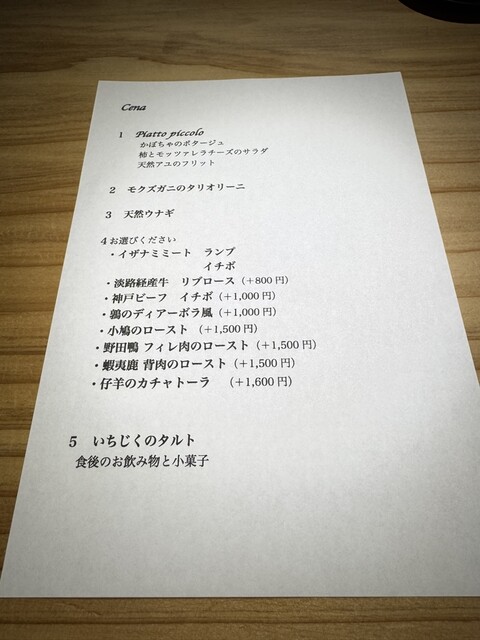 Cena
1 Piatto piccolo
かぼちゃのポタージュ
柿とモッツァレラチーズのサラダ
天然アユのフリット
2 モクズガニのタリオリーニ
3 天然ウナギ
4お選びください
・イザナミミート ランプ
イチボ
・淡路経産牛 リブロース(+800円)
・神戸ビーフ イチボ(+1,000円)
・鶉のディアーボラ風(+1,000円)
・小鳩のロースト (+1,500円)
・野田鴨 フィレ肉のロースト(+1,500円)
・蝦夷鹿 背肉のロースト(+1,500円)
・仔羊のカチャトーラ (+1,600円)
5 いちじくのタルト
食後のお飲み物と小菓子